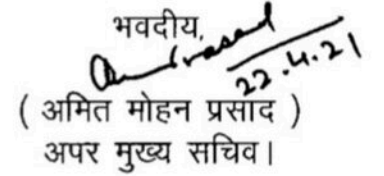 भवदीय,
22.4.21
( अमित मोहन प्रसाद )
अपर मुख्य सचिव।